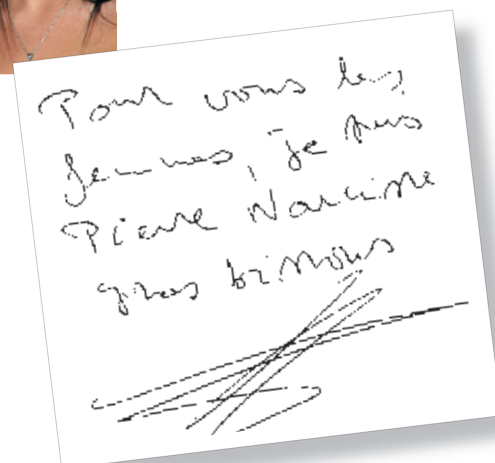 Pour vous les
femmes, je suis
Pierre Narcisse
gros bisous